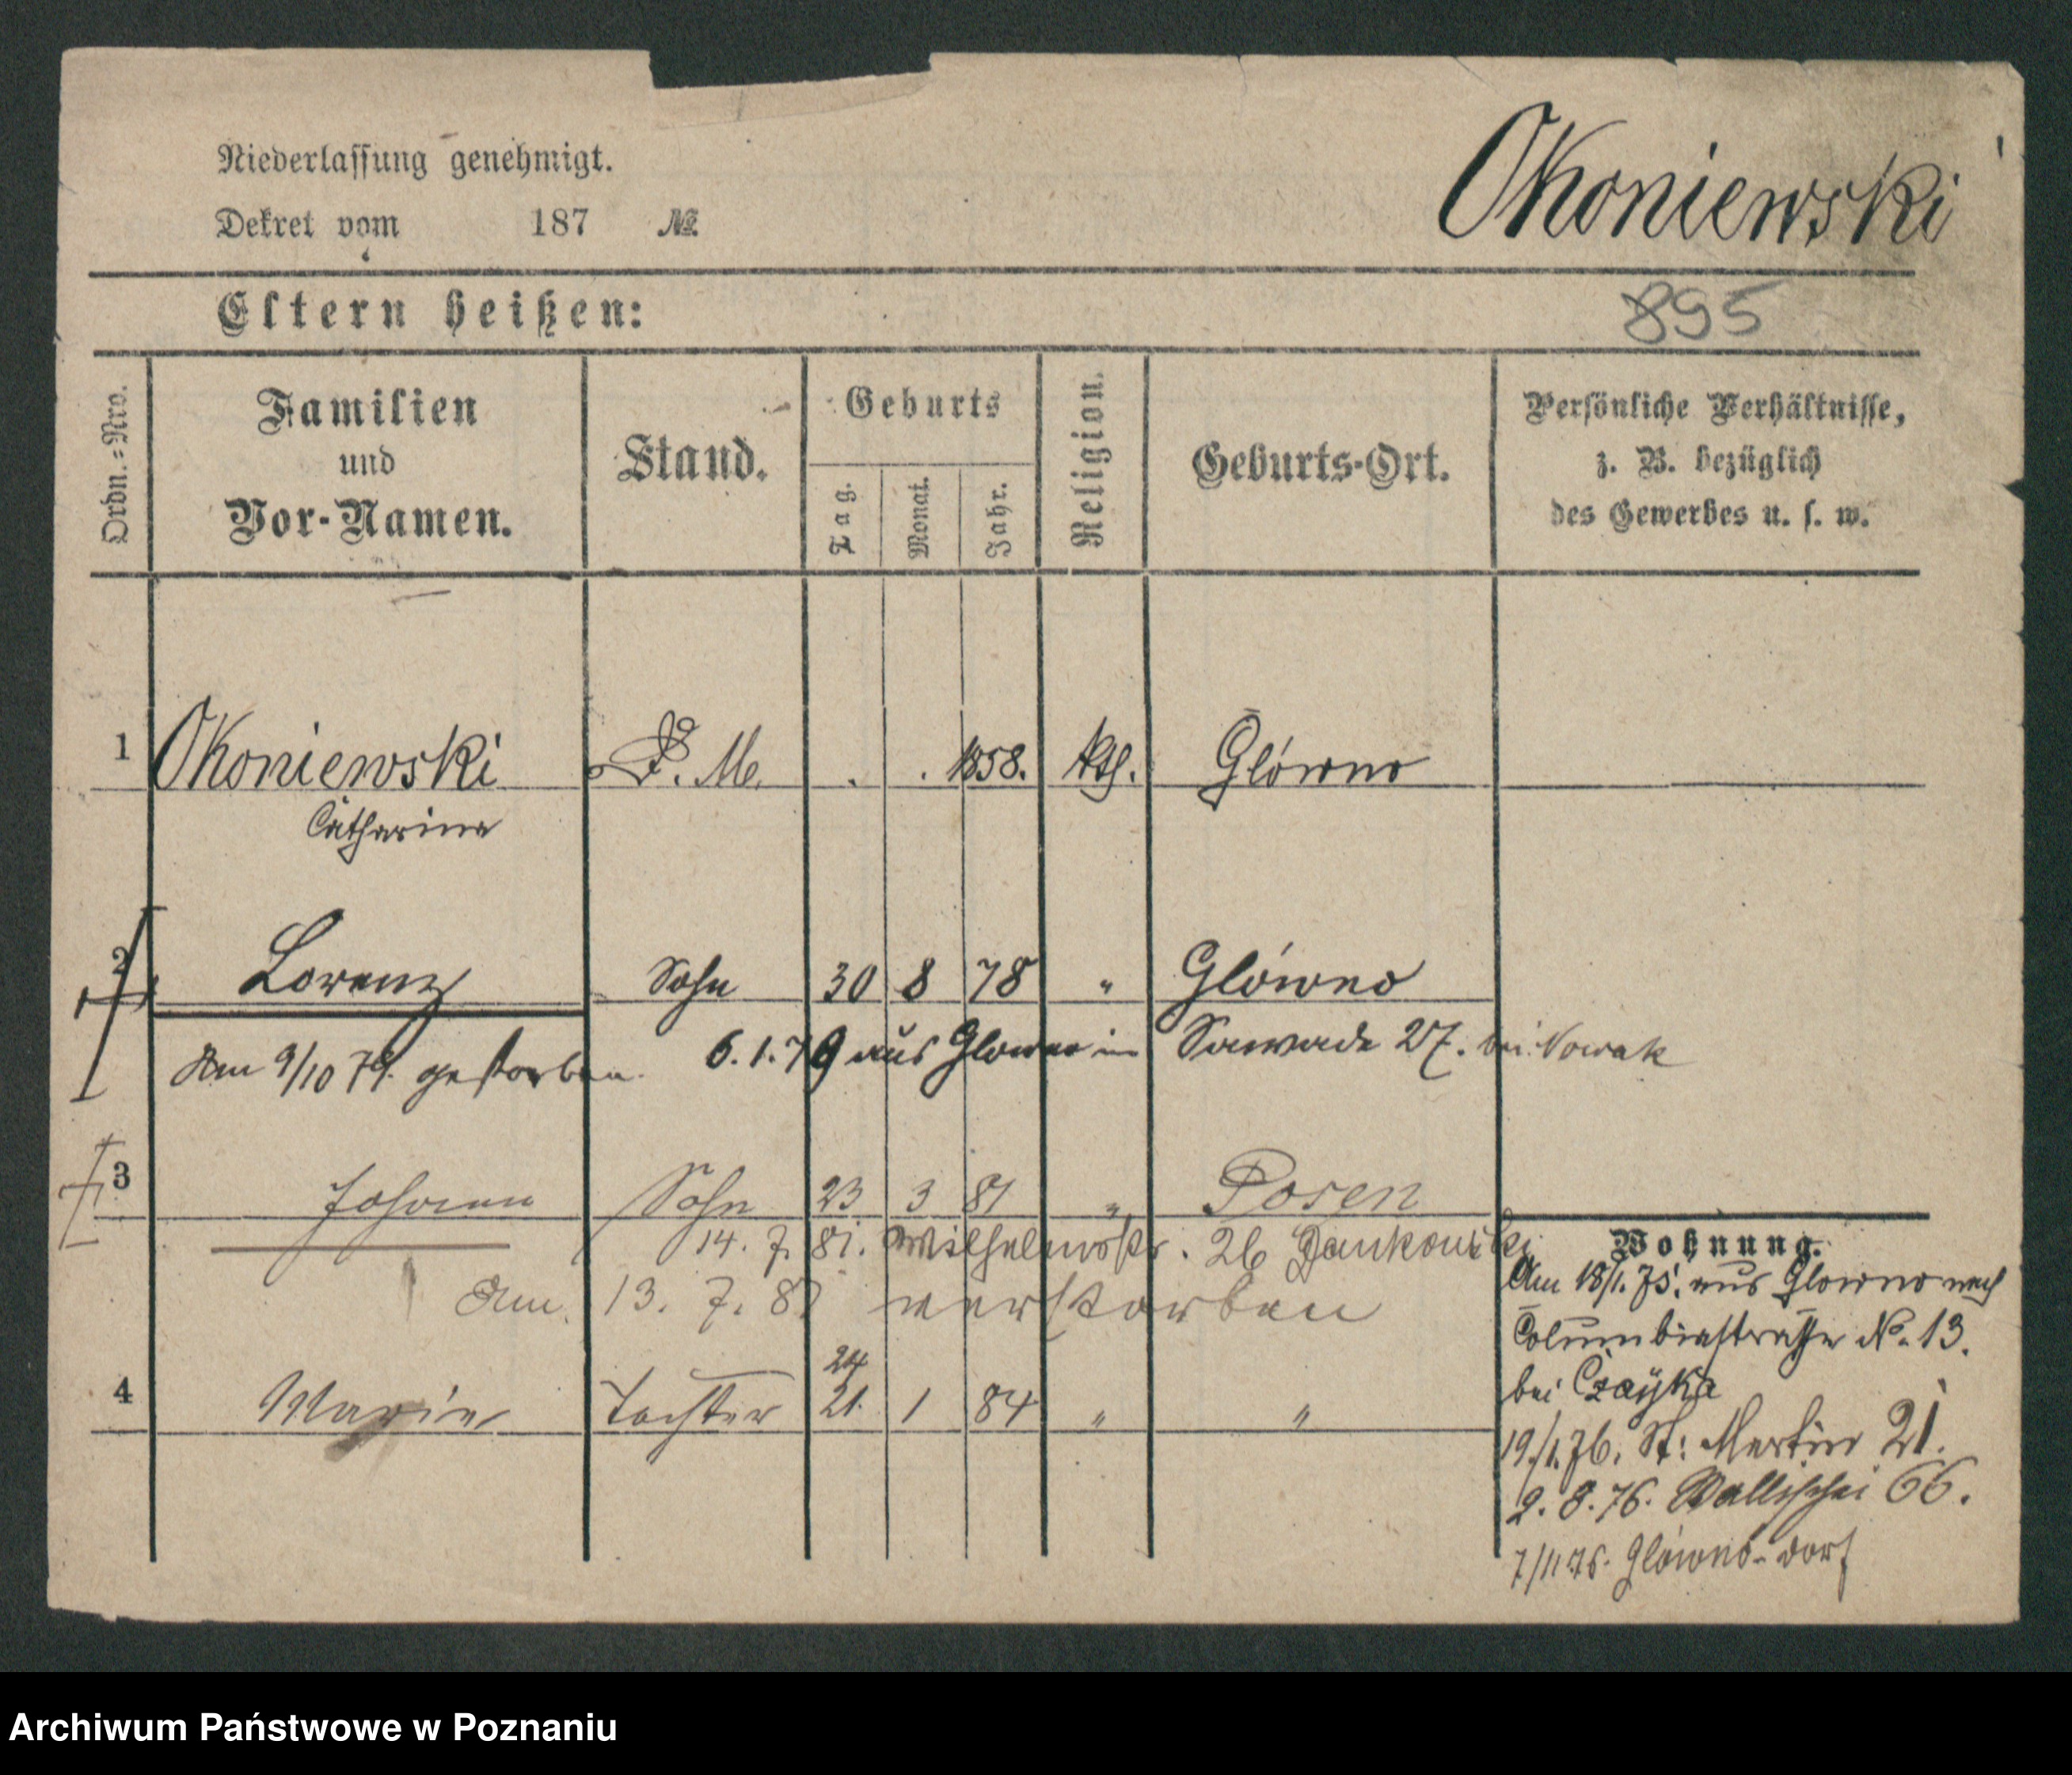 Niederlassung genehmigt.
Dekret vom 187 №
Okoniewski
Eltern heißen:
895
Ordn.=Nro.
Familien
und
Vor-Namen.
Stand.
Geburts
Tag.
Monat.
Jahr.
Religion.
Geburts-Ort.
Persönliche Verhältnisse,
z. B. bezüglich
des Gewerbes u. s. w.
1 Okoniewski D. M. 1858. kth. Glówno
Catharina
2 Lorenz Sohn 30 8 78 " Glówno
6.1.79 aus Glowno in 27. bei Nowak
Am 9/10 79. gestorben.
3 Johann Sohn 23 3 81 " Posen
14. 7. 81. Wilhelmstr. 26 Jankowski
Am 13. 7. 81 verstorben
24
4 Marie Tochter 21. 1 84 " "
Wohnung.
Am 18/1. 75. aus Glowno nach
Columbiastrasse No. 13.
bei Czayka
19/1.76. St: Martin 21.
2. 8. 76. Wallischei 66.
7/11 76. Glówno-dorf
Archiwum Państwowe w Poznaniu